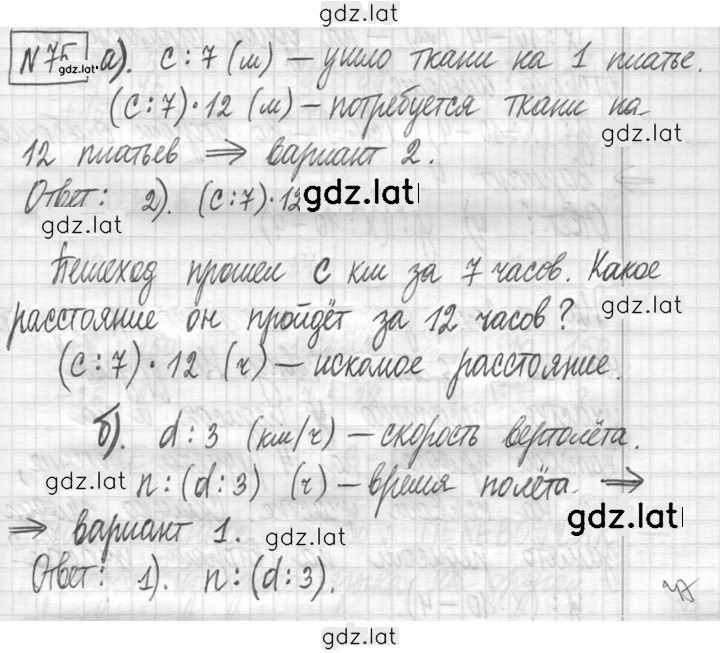 gdz.lat
N 75 а). c : 7 (м) – ушло ткани на 1 платье.
gdz.lat
(c : 7) · 12 (м) – потребуется ткани на
gdz.lat
12 платьев ⇒ вариант 2.
Ответ: 2). (c : 7) · 12 gdz.lat
gdz.lat
Пешеход прошел c км за 7 часов. Какое
gdz.lat
расстояние он пройдёт за 12 часов?
(c : 7) · 12 (ч) – искомое расстояние.
б). d : 3 (км/ч) – скорость вертолёта.
gdz.lat n : (d : 3) (ч) – время полёта. ⇒
⇒ вариант 1. gdz.lat gdz.lat
Ответ: 1). n : (d : 3).
gdz.lat